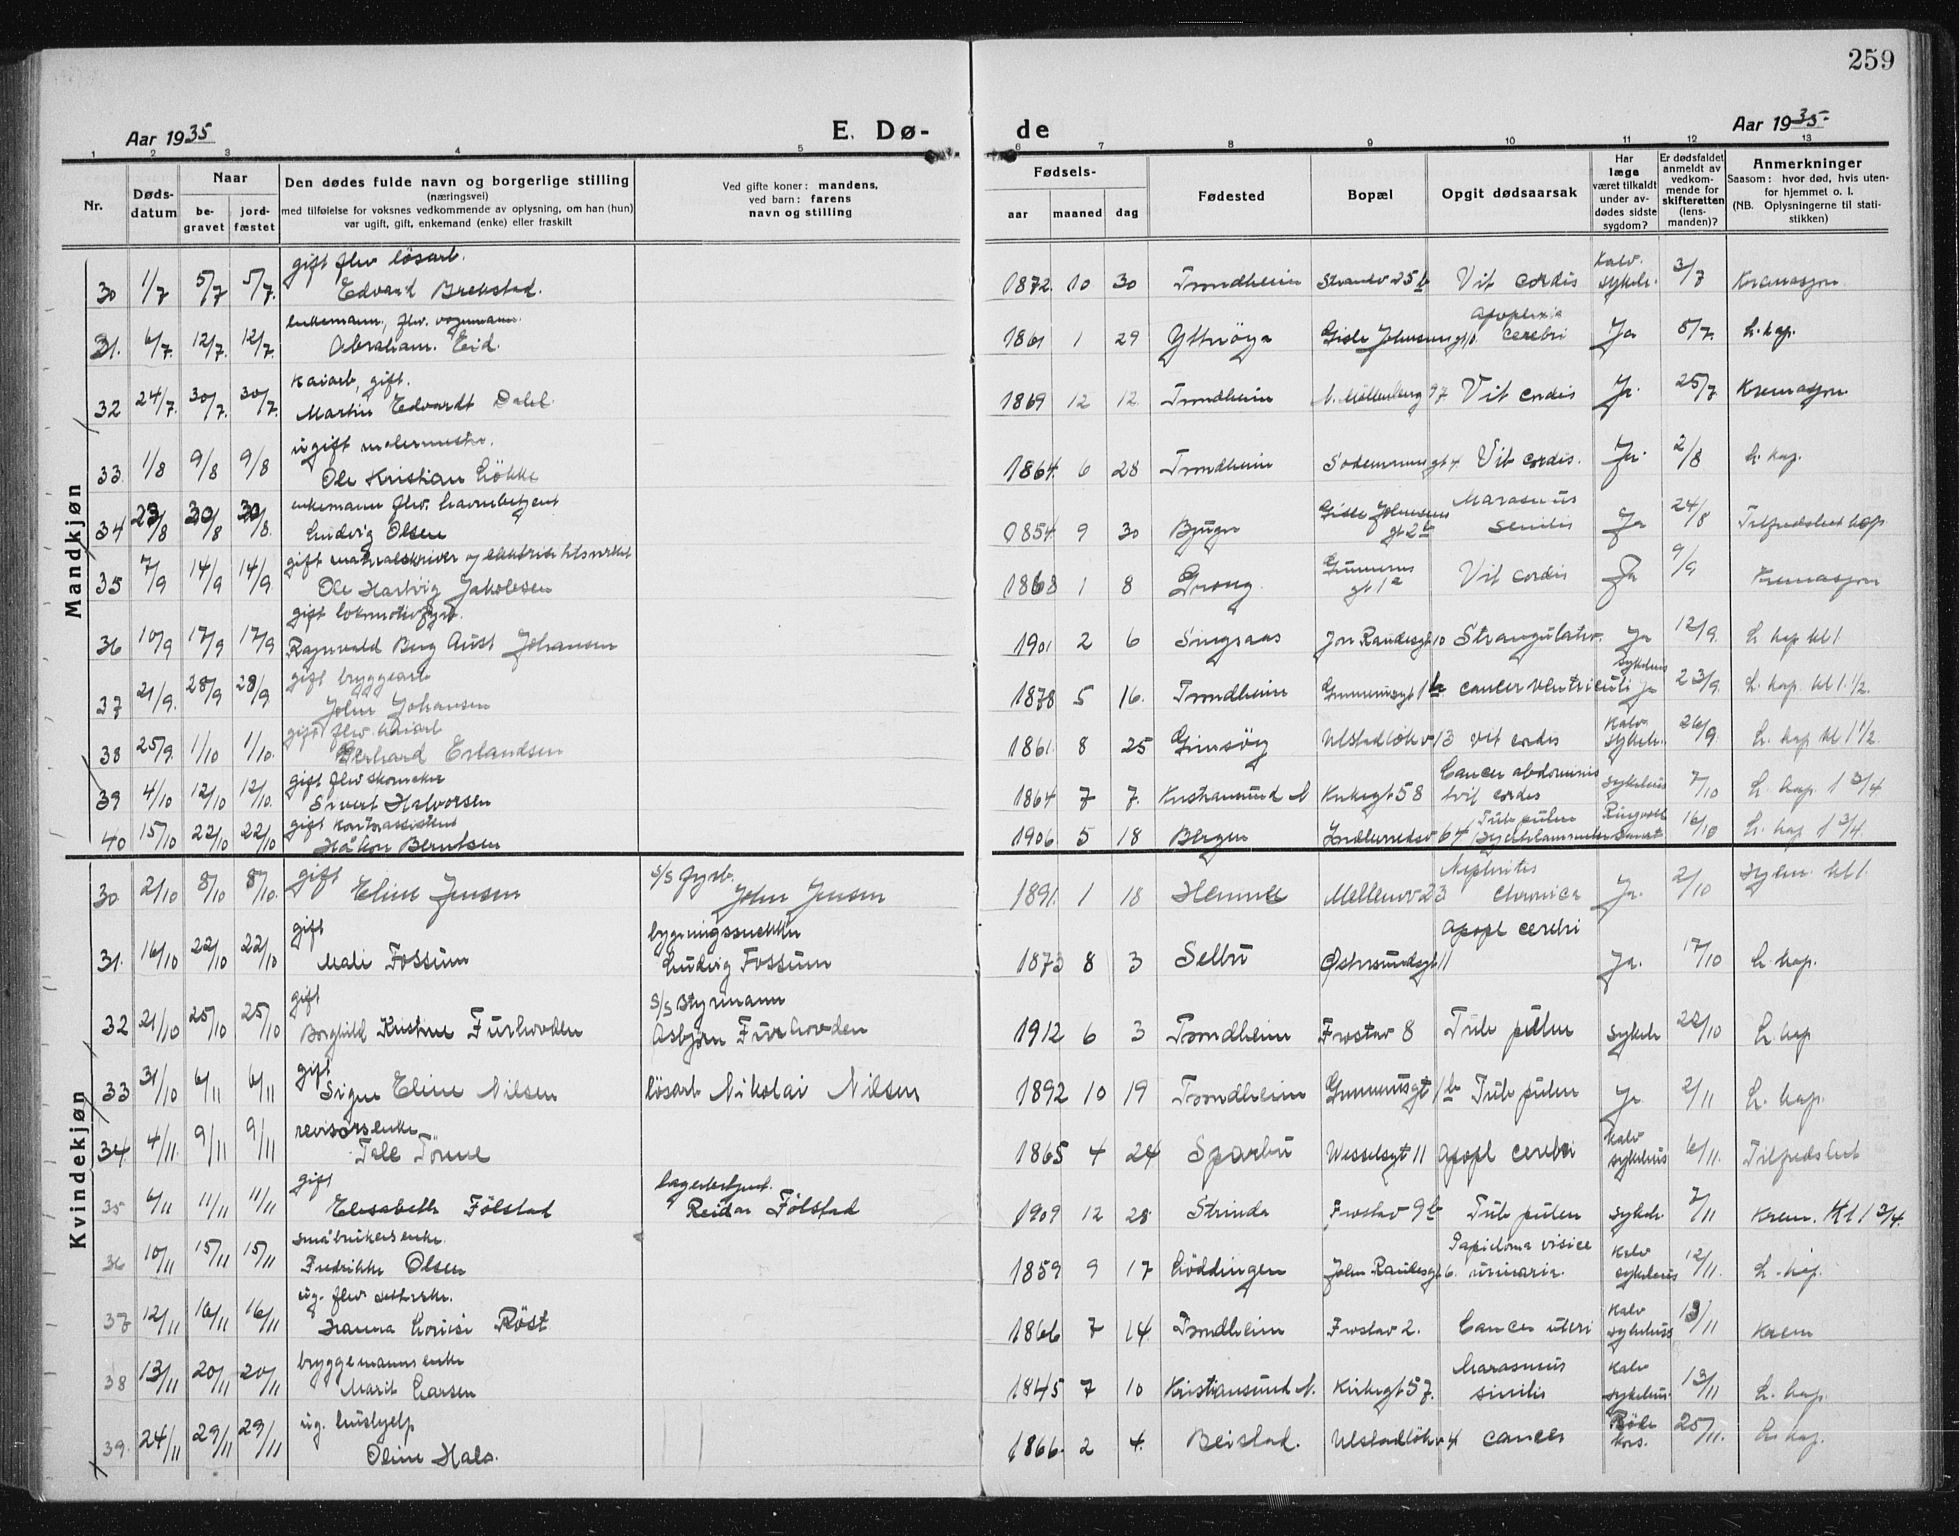 259
Aar 1935
E. Dø-
de
Aar 1935
1 2 3 4 5 6 7 8 9 10 11 12 13
Nr.
Døds-
datum
Naar
be-
gravet
jord-
fæstet
Den dødes fulde navn og borgerlige stilling
(næringsvei)
med tilføielse for voksnes vedkommende av oplysning, om han (hun)
var ugift, gift, enkemand (enke) eller fraskilt
Ved gifte koner: mandens,
ved barn: farens
navn og stilling
Fødsels-
aar maaned dag
Fødested
Bopæl
Opgit dødsaarsak
Har
læge
været tilkaldt
under av-
dødes sidste
sygdom?
Er dødsfaldet
anmeldt av
vedkom-
mende for
skifteretten
(lens-
manden)?
Anmerkninger
Saasom: hvor død, hvis uten-
for hjemmet o. l.
(NB. Oplysningerne til stati-
stikken)
Mandkjøn
gift flv løsarb.
30 1/7 5/7 5/7 Edvard Brekstad. 1872 10 30 Trondheim Strandv 25b Vit cordis Kalv. sykeh. 3/7 Kremasjon
enkemann, flv. vognmann.
31. 6/7 12/7 12/7 Abraham Eid. 1861 1 29 Ytterøya Gisle Johnsensgt Apoplexia cerebri Ja 5/7 L. kap.
Kaiarb, gift.
32 24/7 30/7 30/7 Martin Edvardt Dahl. 1869 12 12 Trondheim N. Møllenberg 97 Vit cordis Ja 25/7 Kremasjon
ugift malermester.
33 1/8 9/8 9/8 Ole Kristian Løkke 1864 6 28 Trondheim gt 4 Vit cordis. Ja. 2/8 L. kap.
enkemann flv. havnebetjent
34 23/8 30/8 30/8 Ludvig Olsen 1854 9 30 Bjugn Gisle Johnsens gt 2b Marasmus senilis Ja 24/8 Tilfredshet kap
gift
35 7/9 14/9 14/9 Ole Hartvig Jakobsen 1863 1 8 Grong. Gunnerus gt 1a Vit cordis Ja 9/9 Kremasjon
gift lokomotivfyrb.
36 10/9 17/9 17/9 Ragnvald Berg Aust Johansen 1901 2 6 Singsaas Jon Raudesgt 10 Ja 12/9 L. kap kl 1
gift bryggearb
37 21/9 28/9 28/9 John Johansen 1878 5 16. Trondheim Gunnerusgt 1b cancer ventriculi sykehus Ja 23/9 L. kap. kl 1 1/2
gift flv. kaiarb
38 25/9 1/10 1/10 Gerhard Erlandsen 1861 8 25 Ulstadløkv 13 Vit cordis Kalv sykeh. 26/9 L. kap kl 1 1/2
gift flv skomaker
39 4/10 12/10 12/10 Sivert Halvorsen 1864 7 7. Kristiansund N Kirkegt 58 Cancer abdominis vit cordis sykehus 7/10 L. kap 1 3/4
gift kontorassistent
40 15/10 22/10 22/10 Håkon Berntsen 1906 5 18 Bergen Innherredsv 64 Tub pulm Ringvål 16/10 L. kap 1 3/4
Kvindekjøn
gift s/s fyrb.
30 2/10 8/10 8/10. Eline Jensen John Jensen 1891 1 18 Hemne Mellemv 23 Nephritis chronica Ja. 2/10 kl 1.
gift bygningssnekker
31. 16/10 22/10 22/10 Mali Fossum Ludvig Fossum 1873 8 3 Selbu Østersundsgt 11 apopl cerebri Ja. 17/10 L. kap.
gift s/s styrmann
32 21/10 25/10 25/10 Borghild Kristine Furhovden Asbjørn Furhovden 1912 6 3 Trondheim Frostav 8 Tub pulm sykeh 22/10 L. kap
gift
33 31/10 6/11 6/11 Signe Eline Nilsen løsarb Nikolai Nilsen 1892 10 19 Trondheim Gunnerusgt 1b Tub pulm Ja 2/11 L. kap.
revisorsenke
34 4/11 9/11 9/11 Tale Tønne 1865 4 24 Sparbu Wesselsgt 11 apopl cerebri Kalv sykehus 6/11. Tilfredshet
gift lagerbetjent.
35 6/11 11/11 11/11 Elisabeth Følstad Reidar Følstad 1909 12 28 Strinda Frostav 9b Tub pulm sykeh 7/11 Krem. Kl 1 3/4.
småbrukers enke.
36 10/11 15/11 15/11 Fredrikke Olsen 1859 9 17 Løddingen John Raudesgt 6. Papiloma visice urinaria. Kalv sykehus 12/11. L. kap.
ug. flv
37 12/11 16/11 16/11 Hanna Lovise Røst 1866 7 14 Trondheim Frostav 2. Cancer uteri Kalv sykehus 13/11 Krem
bryggemanns enke
38 13/11 20/11 20/11 Marit Larsen 1845 7 10 Kristiansund N. Kirkegt 57. Marasmus sinilis Kalv sykehus. 13/11 L. kap.
ug. hushjelp
39. 24/11 29/11 29/11 Oline Hals. 1866 2 4. Beistad. Ulstadløkv 4 cancer Røde kors. 25/11. L. kap.